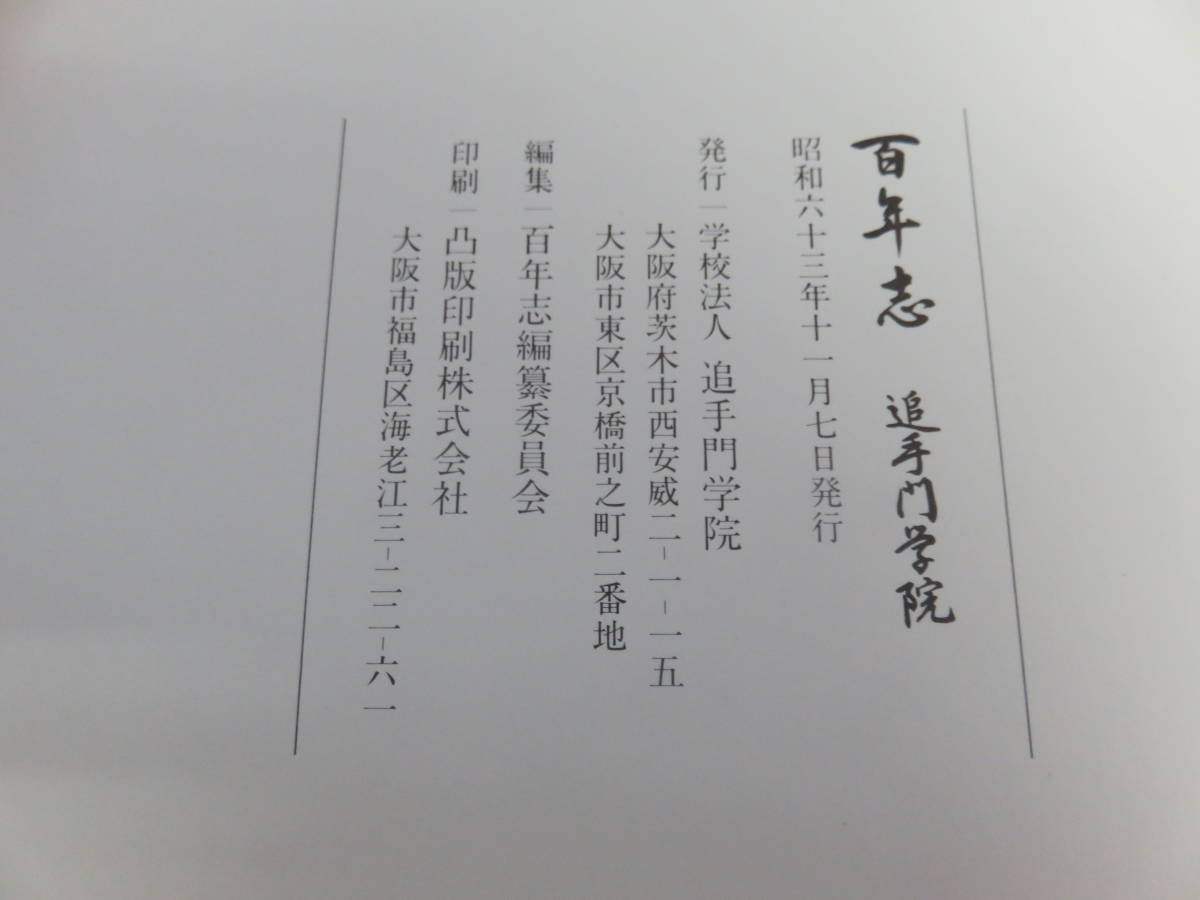 百年志 追手門学院
昭和六十三年十一月七日発行
発行―学校法人 追手門学院
大阪府茨木市西安威二-一-一五
大阪市東区京橋前之町二番地
編集―百年志編纂委員会
印刷―凸版印刷株式会社
大阪市福島区海老江三-二二-六一